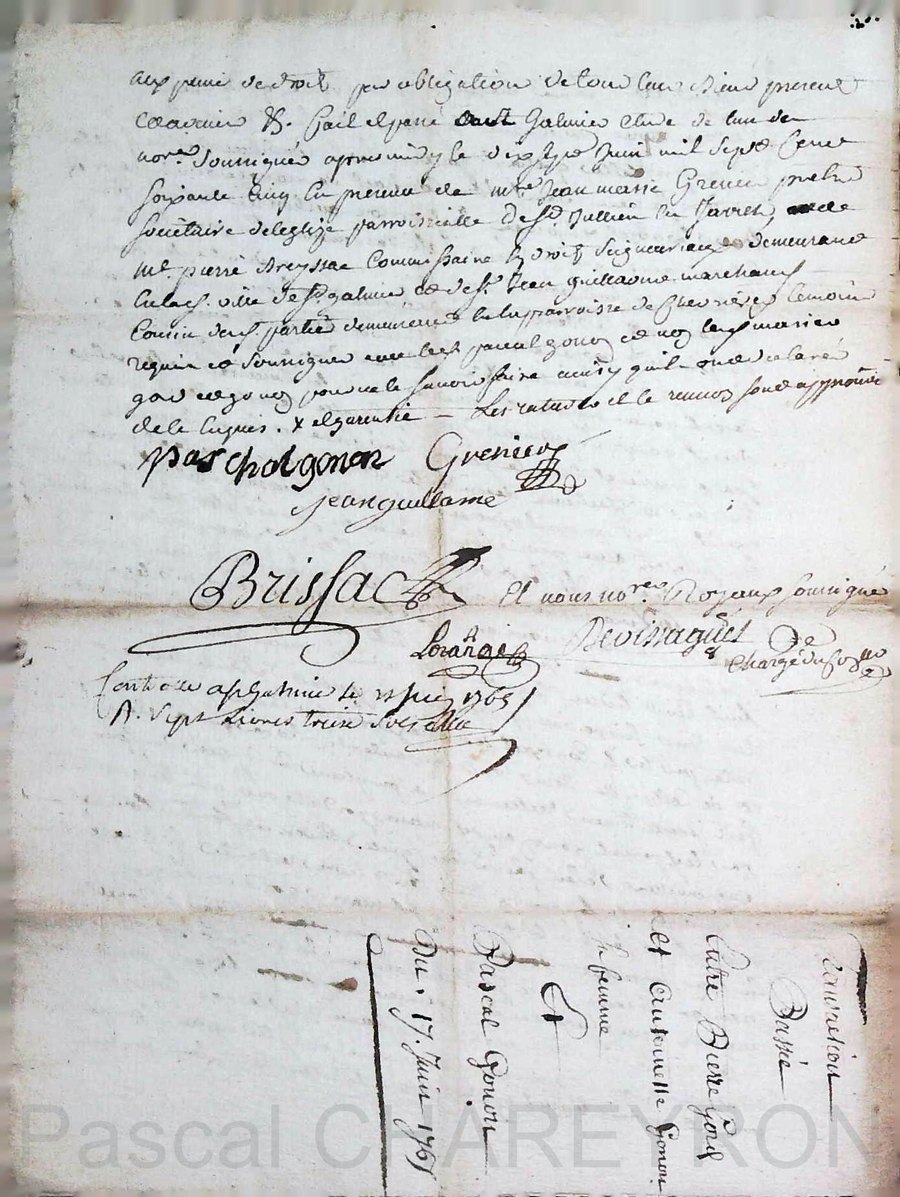 aux peine de droit par obligation de tous leurs biens present
et advenir &. fait et passé audt Galmier étude de l'un des
nores. soussignés apres midy le dix sept juin mil sept cent
soixante cinq en presence de mre Jean masse Grenier pretre
societaire de l'eglize parroissialle de st. Jullien en Jarrest, et de
mr. pierre Breyssac Commissaire en droits seigneuriaux demeurant
en lad. ville de st galmier et de sr. Jean guillaume marchand
cousin des parties demeurant en la parroisse de Chevrières temoins
requis et soussignés avec led. pascal gonon et non lesd. mariés
gord et gonon pour ne le savoir faire ainsy qu'il ont declaré
de ce enquis. x et garentie — Les ratures et le renvoy sont approuvés
paschal gonon Grenier
jean guillaume
Brissac Et nous nores. Royaux soussigné
Lorange Devissaguet
Chargé du
Controlé a st Galmier le 21 juin 1765
R. sept Livres treize sols
transaction
Passée
Entre Pierre Gord
et Antoinette Gonon
sa femme
Et
Pascal Gonon
Du. 17. Juin 1765
Pascal CHAREYRON